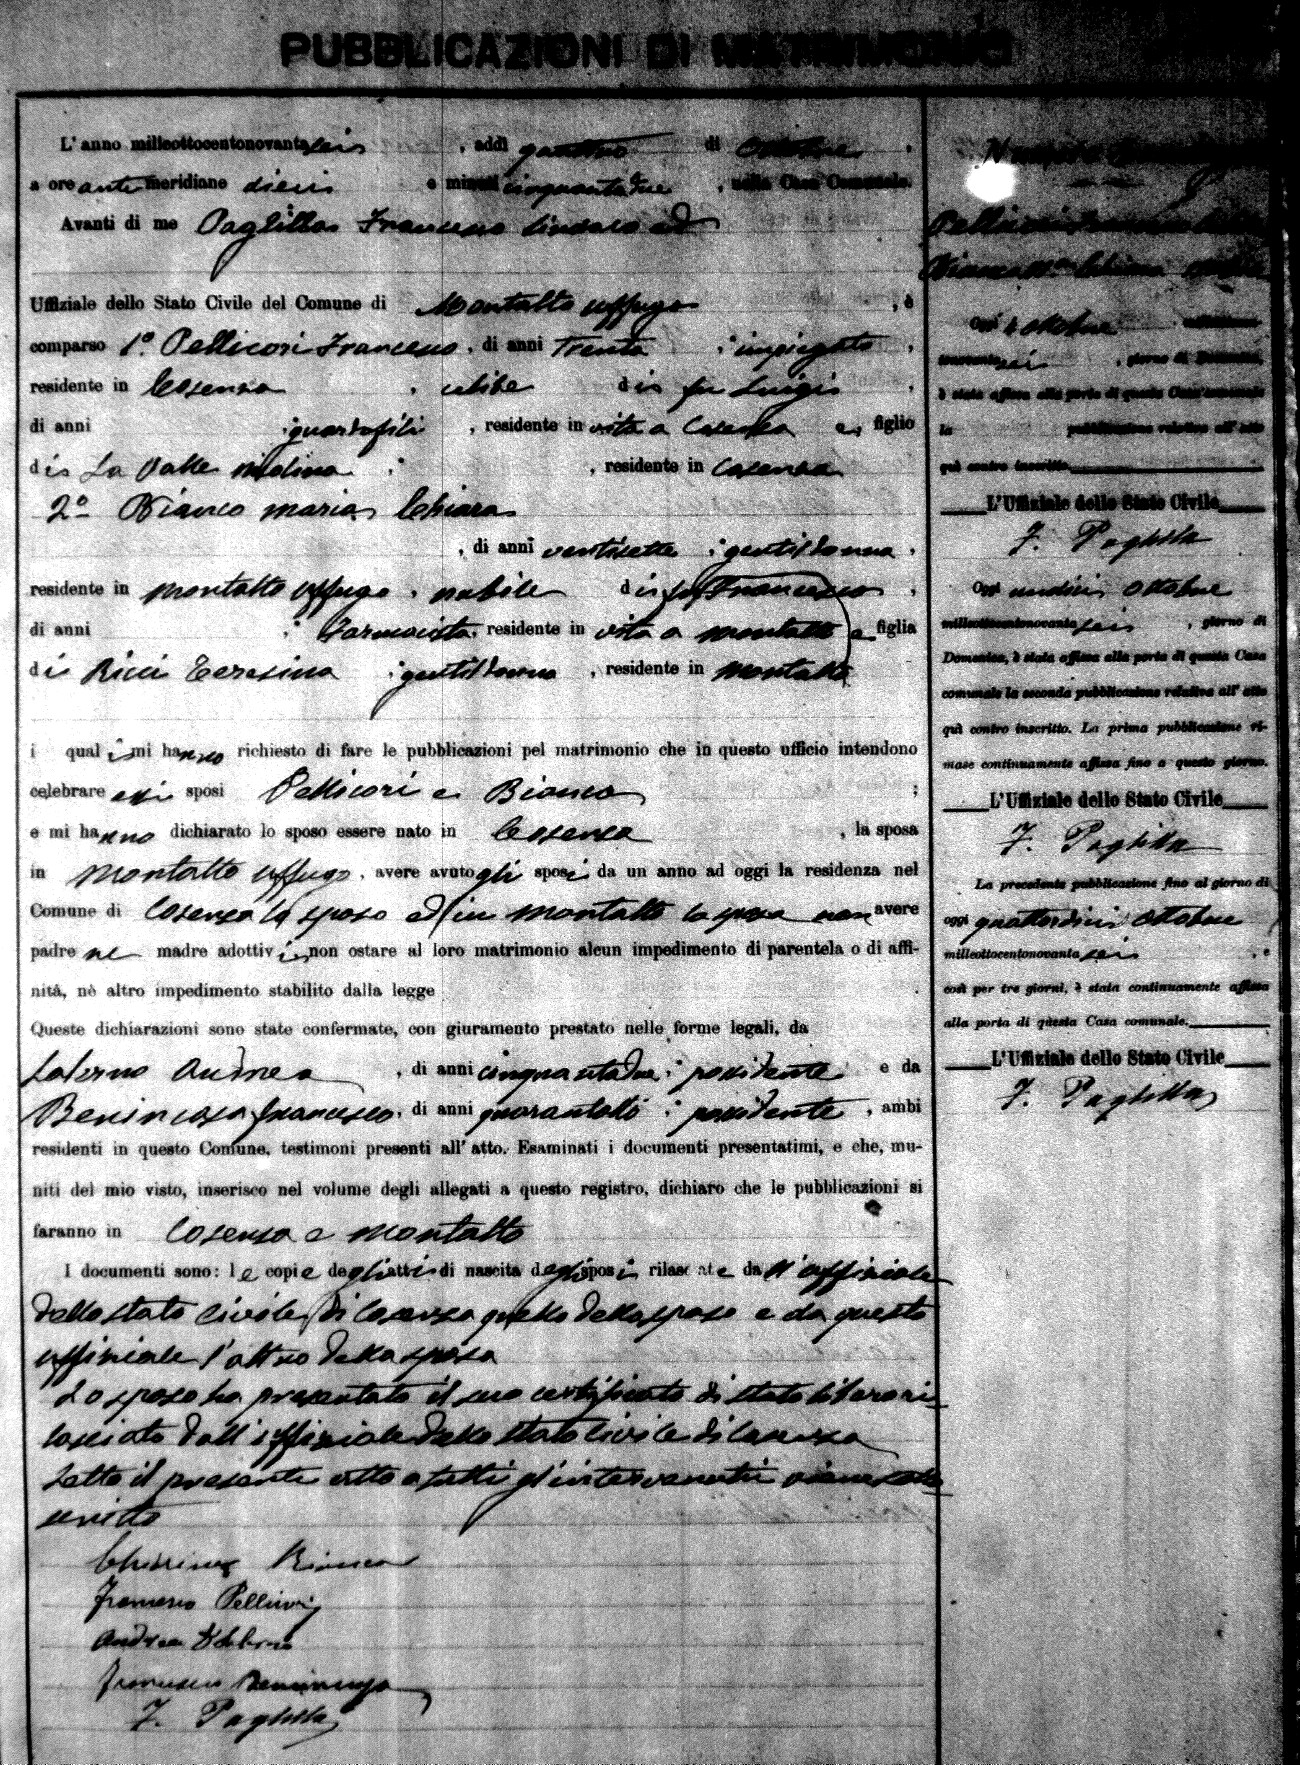 PUBBLICAZIONI DI MATRIMONIO
L'anno milleottocentonovanta sei , addì quattro di Ottobre ,
a ore anti meridiane dieci e minuti cinquantadue , nella Casa Comunale.
Avanti di me Paglilla Francesco Sindaco ed
Uffiziale dello Stato Civile del Comune di Montalto Uffugo , è
comparso 1º. Pellicori Francesco , di anni Trenta , impiegato ,
residente in Cosenza , celibe di fu Luigi ,
di anni , guardafili , residente in vita a Cosenza e figlio
di La Valle , residente in Cosenza
2º Bianco Maria Chiara
, di anni ventisette , gentildonna ,
residente in Montalto Uffugo , nubile di fu Francesco ,
di anni , Farmacista , residente in vita a Montalto e figlia
di Ricci Teresina , gentildonna , residente in Montalto
i quali mi hanno richiesto di fare le pubblicazioni pel matrimonio che in questo ufficio intendono
celebrare essi sposi Pellicori e Bianco ;
e mi hanno dichiarato lo sposo essere nato in Cosenza , la sposa
in Montalto Uffugo , avere avuto gli sposi da un anno ad oggi la residenza nel
Comune di Cosenza lo sposo ed in Montalto la sposa non avere
padre ne madre adottivi, non ostare al loro matrimonio alcun impedimento di parentela o di affi-
nità, nè altro impedimento stabilito dalla legge
Queste dichiarazioni sono state confermate, con giuramento prestato nelle forme legali, da
Salerno Andrea , di anni cinquantadue , possidente e da
Benincasa Francesco , di anni quarantotto , possidente , ambi
residenti in questo Comune, testimoni presenti all'atto. Esaminati i documenti presentatimi, e che, mu-
niti del mio visto, inserisco nel volume degli allegati a questo registro, dichiaro che le pubblicazioni si
faranno in Cosenza e Montalto
I documenti sono: le copie degli atti di nascita degli sposi rilasciate dall'uffiziale
dello stato civile di Cosenza quello dello sposo e da questo
uffiziale l'altro della sposa
Lo sposo ha presentato il suo certificato di stato libero ri-
lasciato dall'uffiziale dello stato civile di Cosenza
Letto il presente atto a tutti gl'intervenuti viene sotto
scritto
Bianco
Francesco Pellicori
Andrea Salerno
Francesco Benincasa
F. Paglilla
Numero
Pellicori Francesco
Bianco Ma Chiara
Oggi 4 ottobre milleottocen-
tonovanta sei , giorno di Domenica,
è stata affissa alla porta di questa Casa comunale
la pubblicazione relativa all'atto
quì contro inscritto.
L'Uffiziale dello Stato Civile
F. Paglilla
Oggi undici Ottobre
milleottocentonovanta sei , giorno di
Domenica, è stata affissa alla porta di questa Casa
comunale la seconda pubblicazione relativa all'atto
quì contro inscritto. La prima pubblicazione ri-
mase continuamente affissa fino a questo giorno.
L'Uffiziale dello Stato Civile
F. Paglilla
La precedente pubblicazione fino al giorno di
oggi quattordici Ottobre
milleottocentonovanta sei , e
così per tre giorni, è stata continuamente affissa
alla porta di questa Casa comunale.
L'Uffiziale dello Stato Civile
F. Paglilla